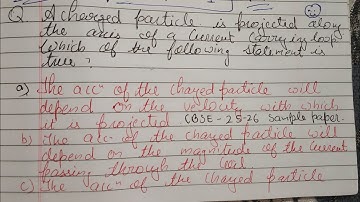 Q A charged particle is projected along
the axis of a current carrying loop
which of the following statement is
true?
a) The accⁿ of the charged particle will
depend on the velocity with which
it is projected CBSE-25-26 Sample paper.
b) The accⁿ of the charged particle will
depend on the magnitude of the current
passing through the coil
c) The accⁿ of the charged particle